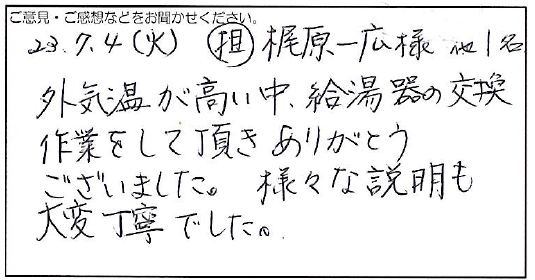 ご意見・ご感想などをお聞かせください。
23.7.4(火) 担 梶原一広様 他1名
外気温が高い中、給湯器の交換
作業をして頂きありがとう
ございました。様々な説明も
大変丁寧でした。